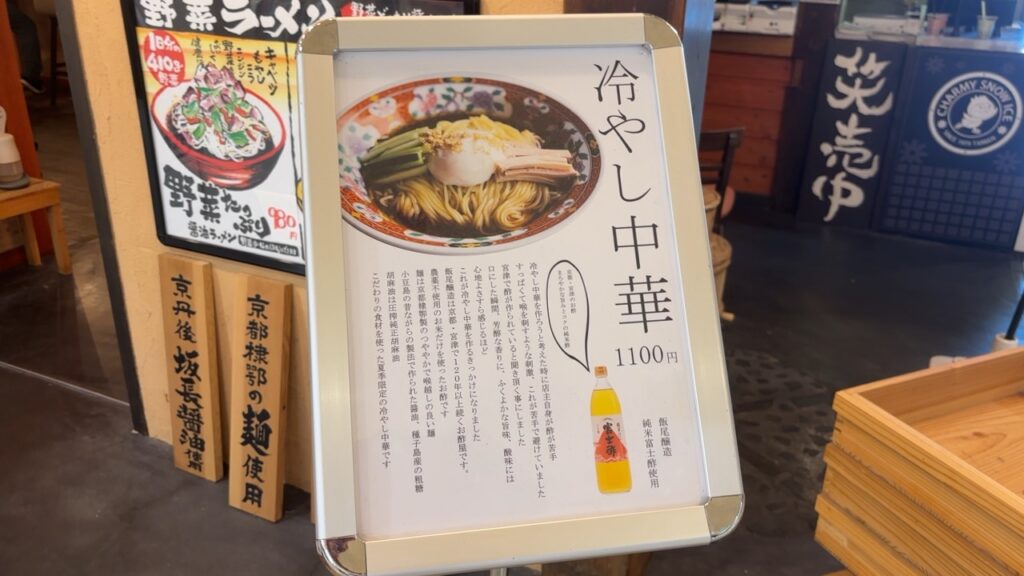 冷やし中華
1100円
飯尾醸造
純米富士酢使用
京都・宮津のお酢
まろやかな旨みとコクの純米酢
冷やし中華を作ろうと考えた時に店主自身が酢が苦手
すっぱくて喉を刺すような刺激、これが苦手で避けていました
宮津で酢が作られていると聞き頂く事にしました
口にした瞬間、芳醇な香りに、ふくよかな旨味、酸味には
心地よさすら感じるほど
これが冷やし中華を作るきっかけになりました
飯尾醸造は京都・宮津で120年以上続くお酢屋です。
農薬不使用のお米だけを使ったお酢です
麺は京都棣鄂製のつややかで喉越しの良い麺
小豆島の昔ながらの製法で作られた醤油、種子島産の粗糖
胡麻油は圧搾純正胡麻油
こだわりの食材を使った夏季限定の冷やし中華です
富士酢
野菜ラーメン
1日分の
410g
野菜
キャベツ
もやし
野菜たっぷり
醤油ラーメン
京都棣鄂の麺使用
京丹後 坂長醤油使用
笑売中
CHARMY SNOW ICE